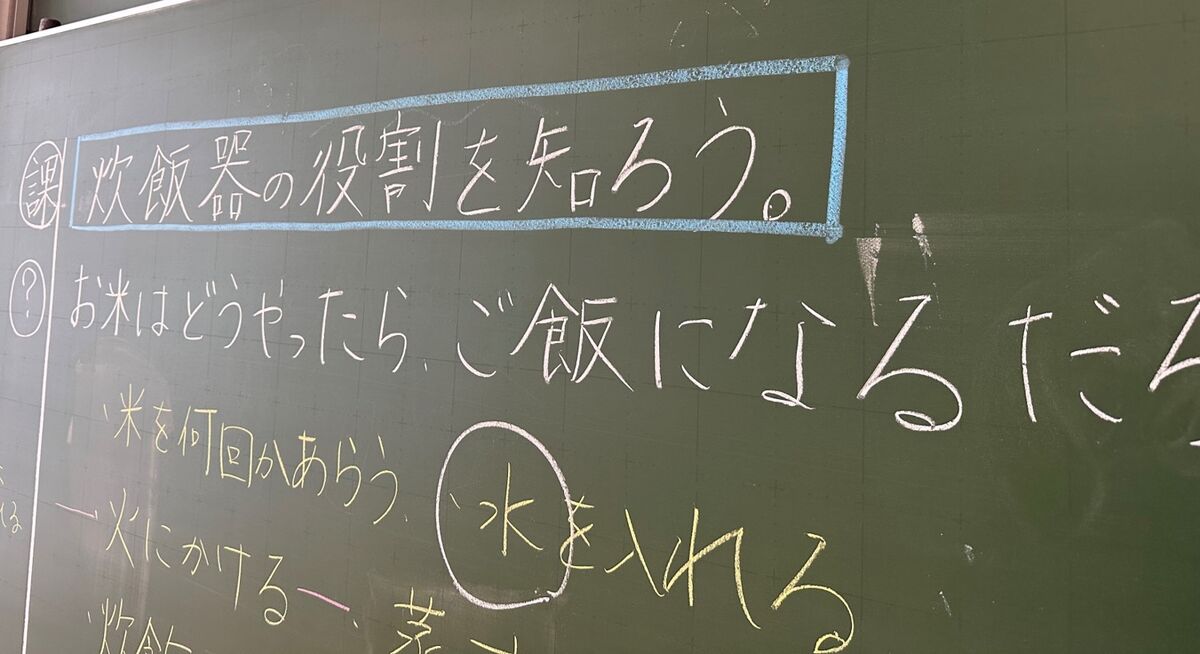 課 炊飯器の役割を知ろう。
? お米はどうやったら、ご飯になるだろ
・米を何回かあらう、
・水を入れる
火にかける
・炊飯
・蒸